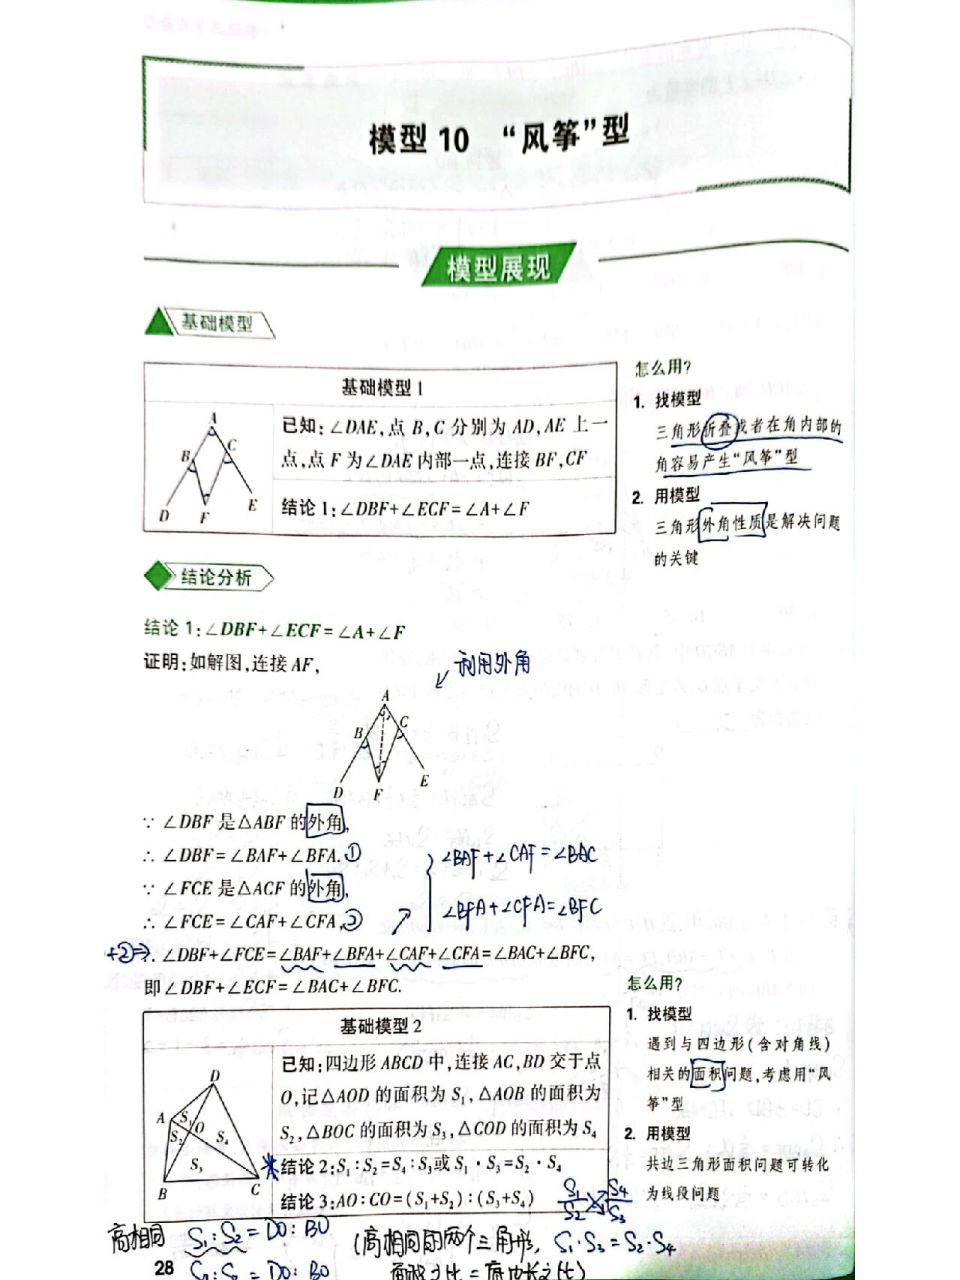 模型 10 “风筝”型
模型展现
基础模型
基础模型 1
已知:∠DAE,点 B,C 分别为 AD,AE 上一
点,点 F 为∠DAE 内部一点,连接 BF,CF
结论 1:∠DBF+∠ECF=∠A+∠F
A
B
C
D
F
E
怎么用?
1. 找模型
三角形折叠或者在角内部的
角容易产生“风筝”型
2. 用模型
三角形外角性质是解决问题
的关键
结论分析
结论 1:∠DBF+∠ECF=∠A+∠F
证明:如解图,连接 AF,
利用外角
A
B
C
D
F
E
∵ ∠DBF 是△ABF 的外角,
∴ ∠DBF=∠BAF+∠BFA.①
∵ ∠FCE 是△ACF 的外角,
∴ ∠FCE=∠CAF+∠CFA,②
∠BAF+∠CAF=∠BAC
∠BFA+∠CFA=∠BFC
+②⇒∴ ∠DBF+∠FCE=∠BAF+∠BFA+∠CAF+∠CFA=∠BAC+∠BFC,
即∠DBF+∠ECF=∠BAC+∠BFC.
基础模型 2
已知:四边形 ABCD 中,连接 AC,BD 交于点
O,记△AOD 的面积为 S₁,△AOB 的面积为
S₂,△BOC 的面积为 S₃,△COD 的面积为 S₄
结论 2:S₁:S₂=S₄:S₃或 S₁·S₃=S₂·S₄
结论 3:AO:CO=(S₁+S₂):(S₃+S₄)
D
A
S₁
O
S₂
S₄
S₃
B
C
怎么用?
1. 找模型
遇到与四边形(含对角线)
相关的面积问题,考虑用“风
筝”型
2. 用模型
共边三角形面积问题可转化
为线段问题
S₁/S₂ S₄/S₃
高相同 S₁:S₂=DO:BO (高相同的两个三角形, S₁·S₃=S₂·S₄
28
=DO:BO 面积之比=底边长之比)